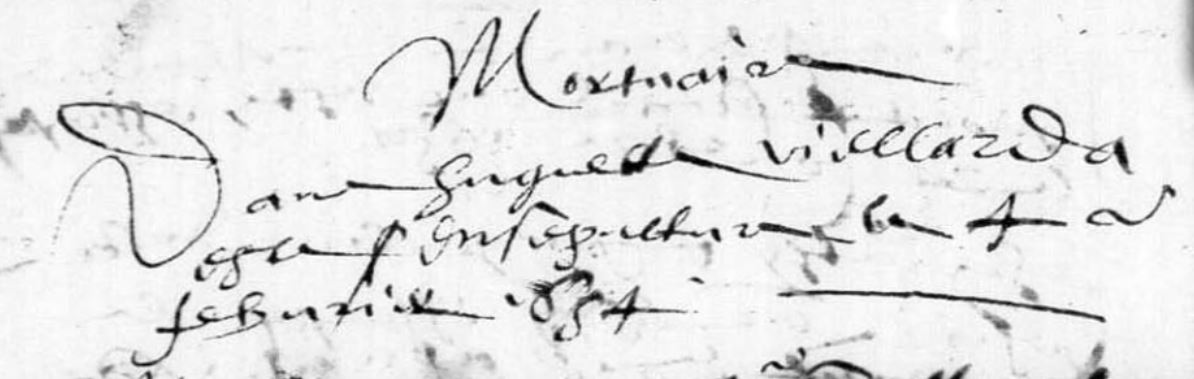 Mortuaire
Dame huguette viellarda
este ensepulture le 4 d
febvrier 1654